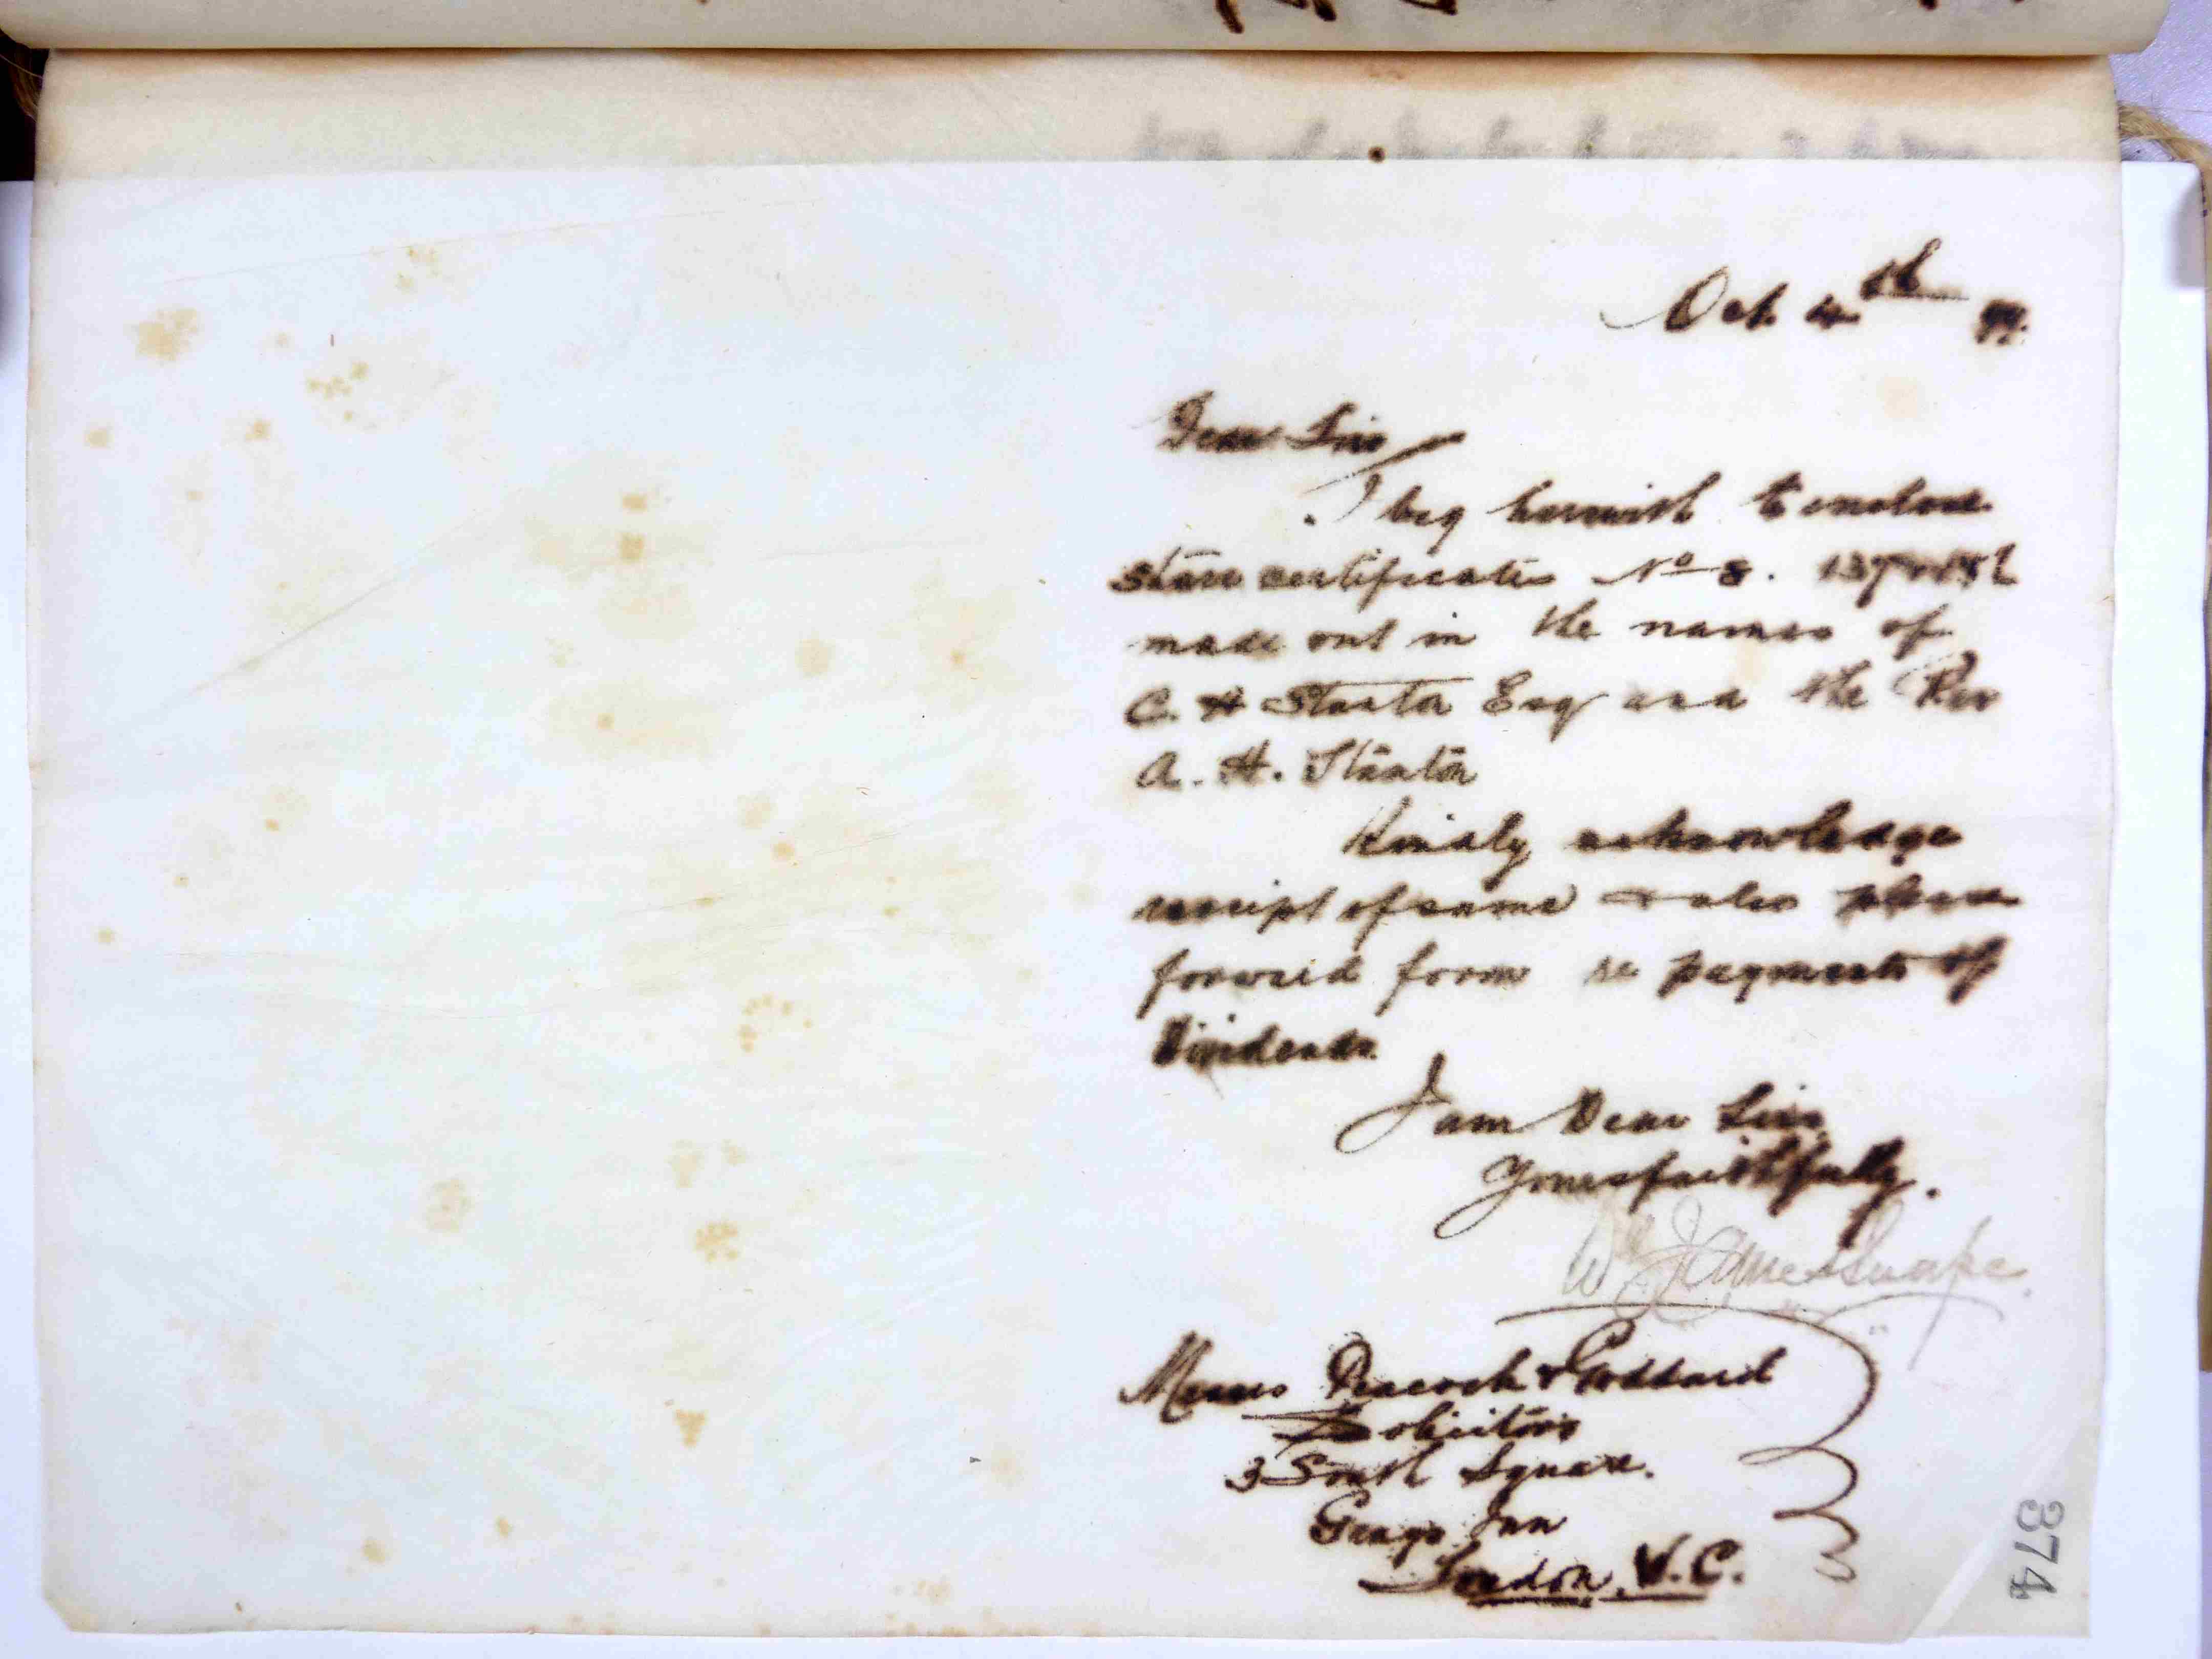 Oct. 4th 99.
Dear Sirs
I beg herewith to enclose
share certificates No 8. 137
made out in the names of
C. H Stanton Esq and the Rev
A. H. Stanton
Kindly acknowledge
receipt of same & also please
forward form re payments of
Dividends.
I am Dear Sirs
Yours faithfully.
Wm James
Messrs Peacock & Goddard
Solicitors
3 South Square.
Grays Inn
London. W.C.
374